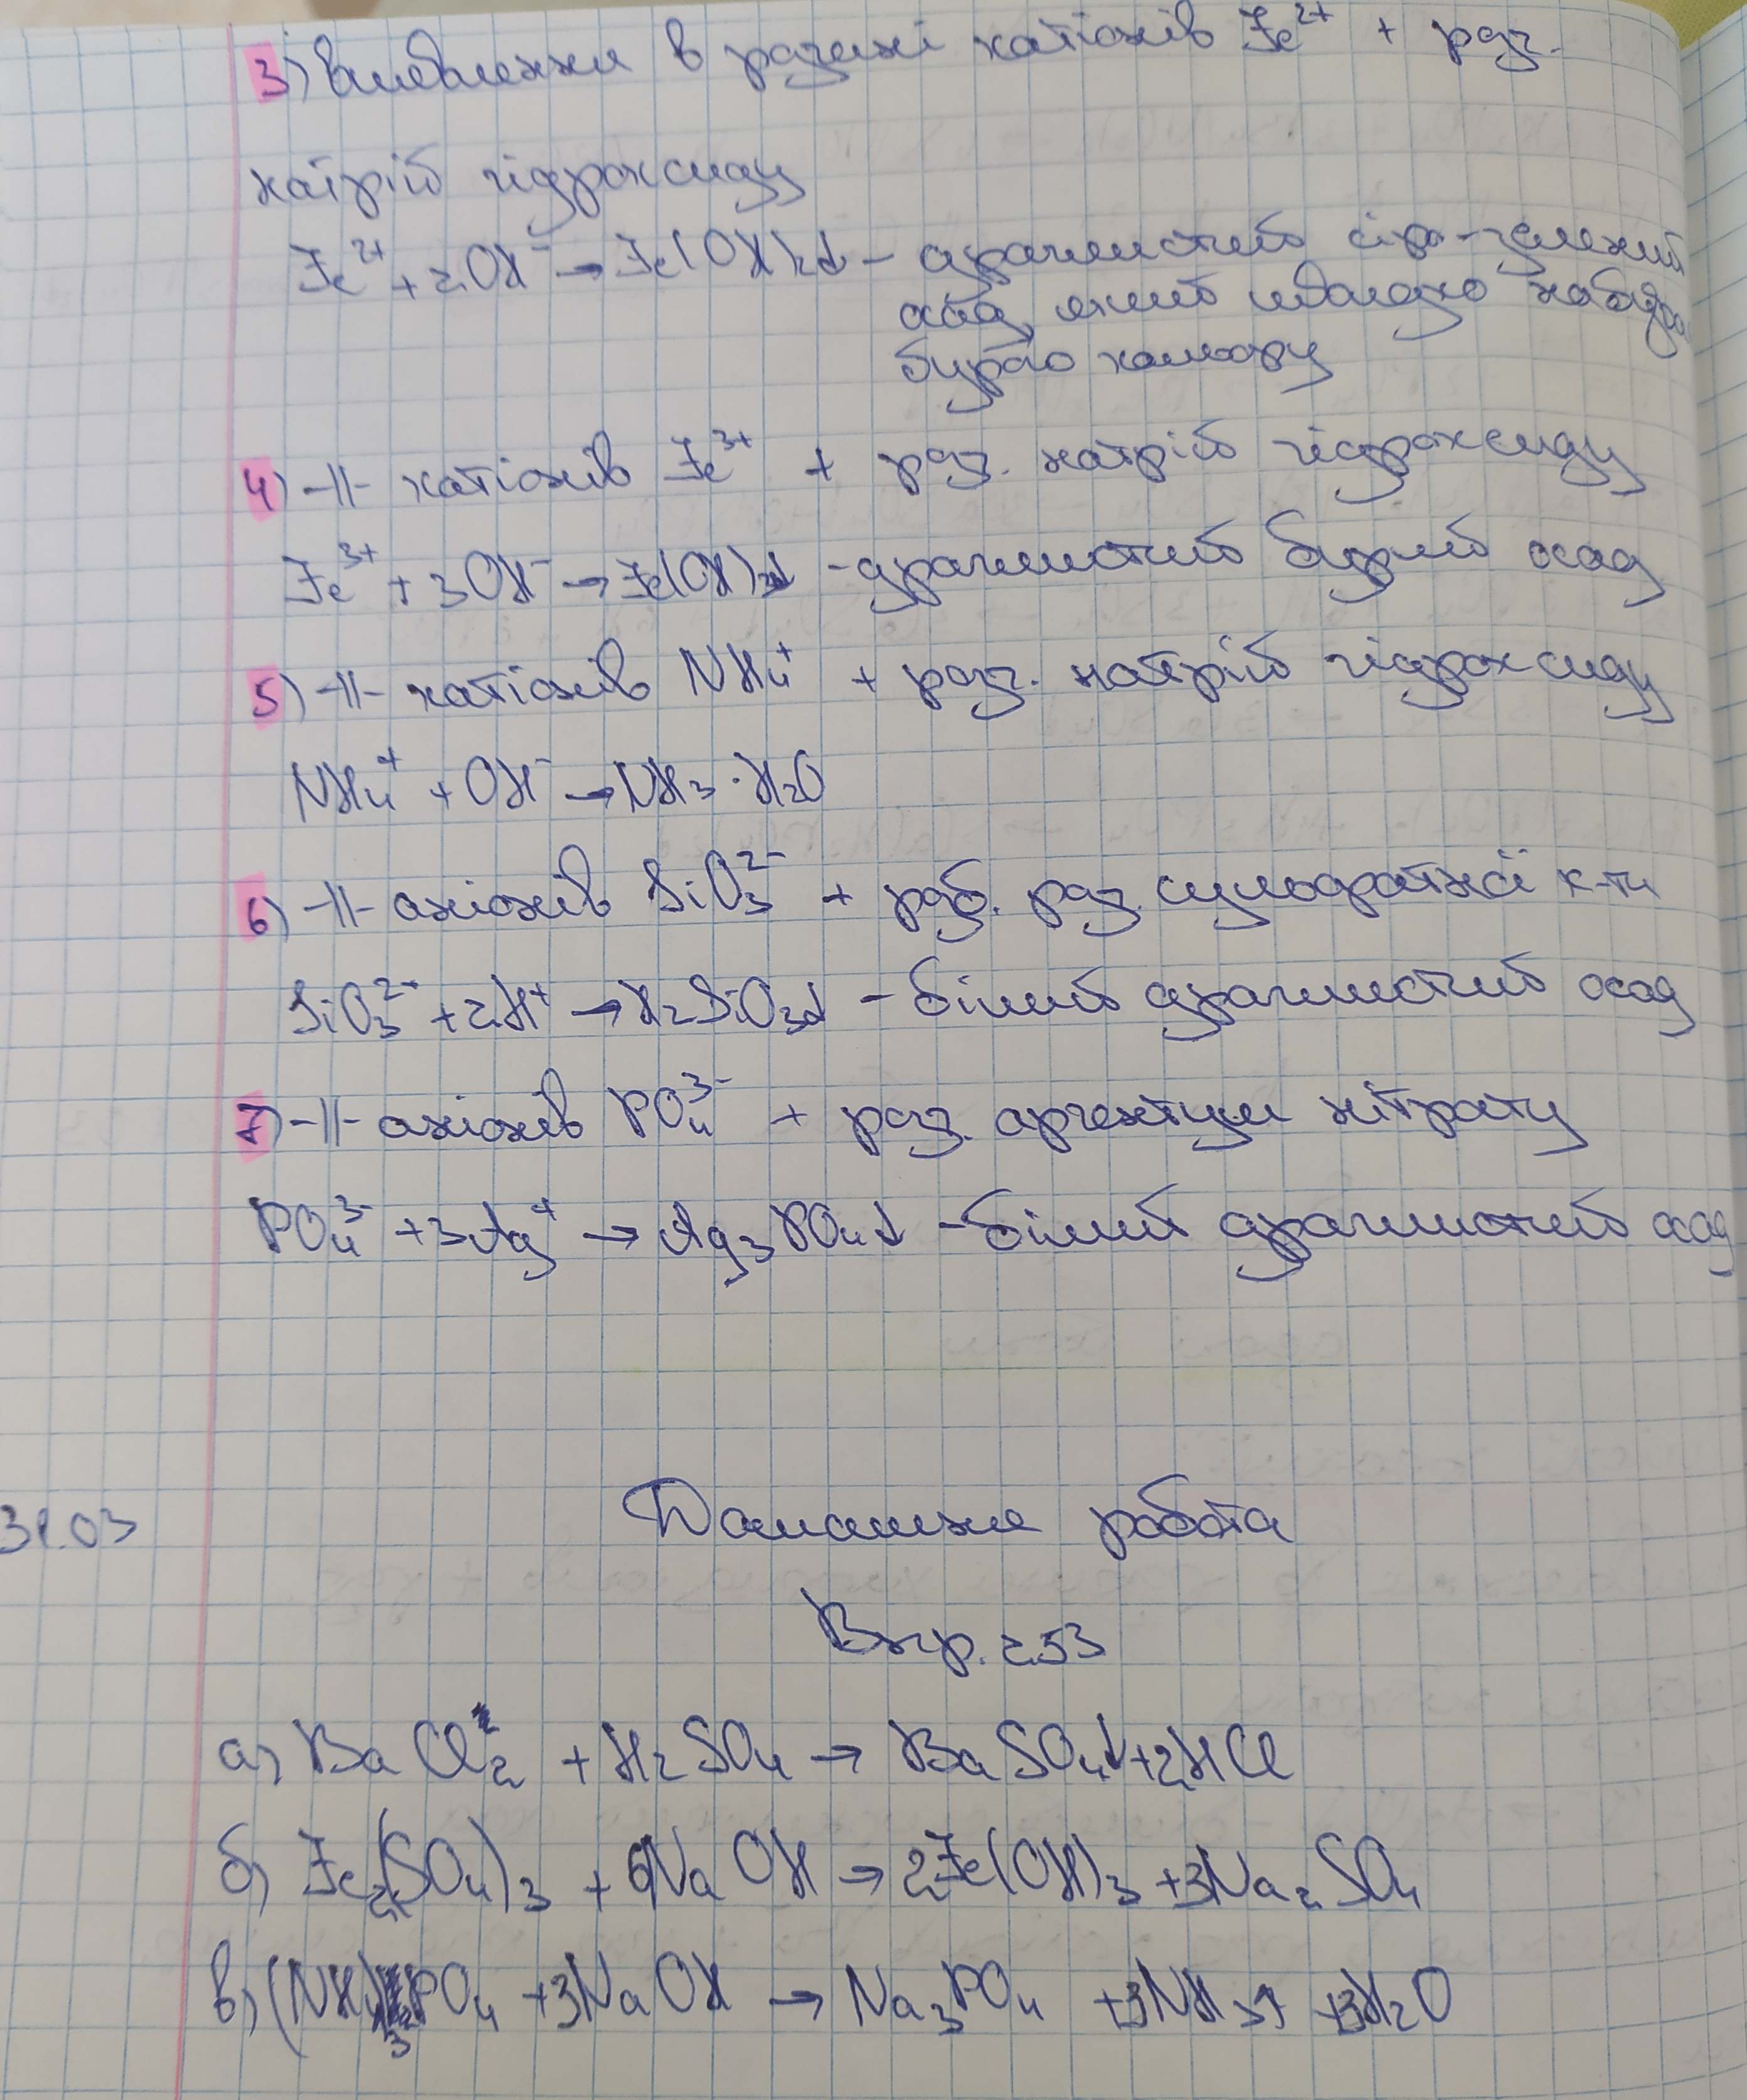 3) Виявлення в розчині катіонів Fe²⁺ + розч.
натрій гідроксиду
Fe²⁺ + 2OH⁻ → Fe(OH)₂↓ - драглистий сіро-зелений
осад, який швидко набуває
бурого кольору
4) -||- катіонів Fe³⁺ + розч. натрій гідроксиду
Fe³⁺ + 3OH⁻ → Fe(OH)₃↓ - драглистий бурий осад
5) -||- катіонів NH₄⁺ + розч. натрій гідроксиду
NH₄⁺ + OH⁻ → NH₃·H₂O
6) -||- аніонів SiO₃²⁻ + розб. роз. сульфатної к-ти
SiO₃²⁻ + 2H⁺ → H₂SiO₃↓ - білий драглистий осад
7) -||- аніонів PO₄³⁻ + роз. аргентум нітрату
PO₄³⁻ + 3Ag⁺ → Ag₃PO₄↓ - білий драглистий осад
31.03 Домашня робота
Впр. 253
а) BaCl₂ + H₂SO₄ → BaSO₄↓ + 2HCl
б) Fe₂(SO₄)₃ + 6NaOH → 2Fe(OH)₃ + 3Na₂SO₄
в) (NH₄)₃PO₄ + 3NaOH → Na₃PO₄ + 3NH₃↑ + 3H₂O